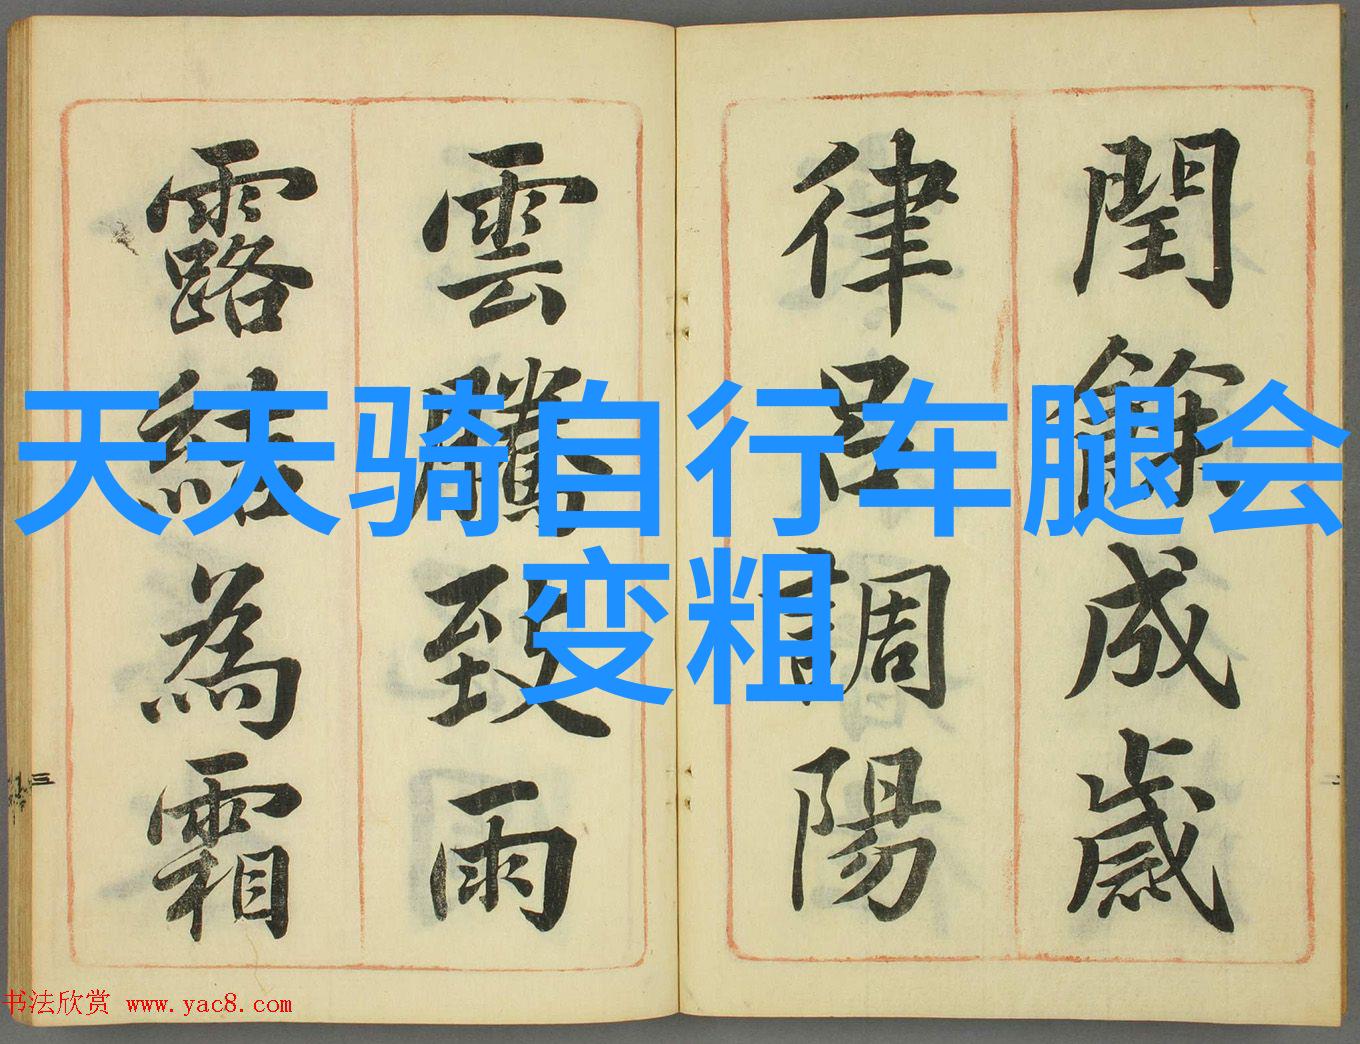 天天骑自行车腿会
变粗
閏餘成歲
律呂調陽
雲騰致雨
露結為霜
三
二
书法欣赏 www.yac8.com